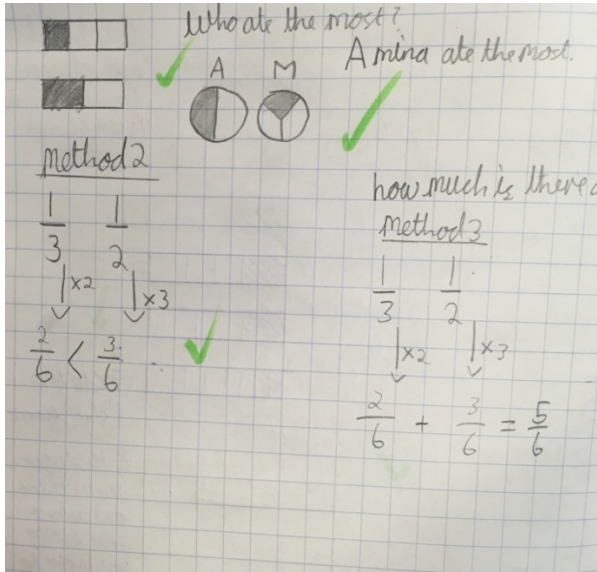 Who ate the most?
Amina ate the most.
A M
method 2
1/3 1/2
×2 ×3
2/6 < 3/6
how much is there
method 3
1/3 1/2
×2 ×3
2/6 + 3/6 = 5/6